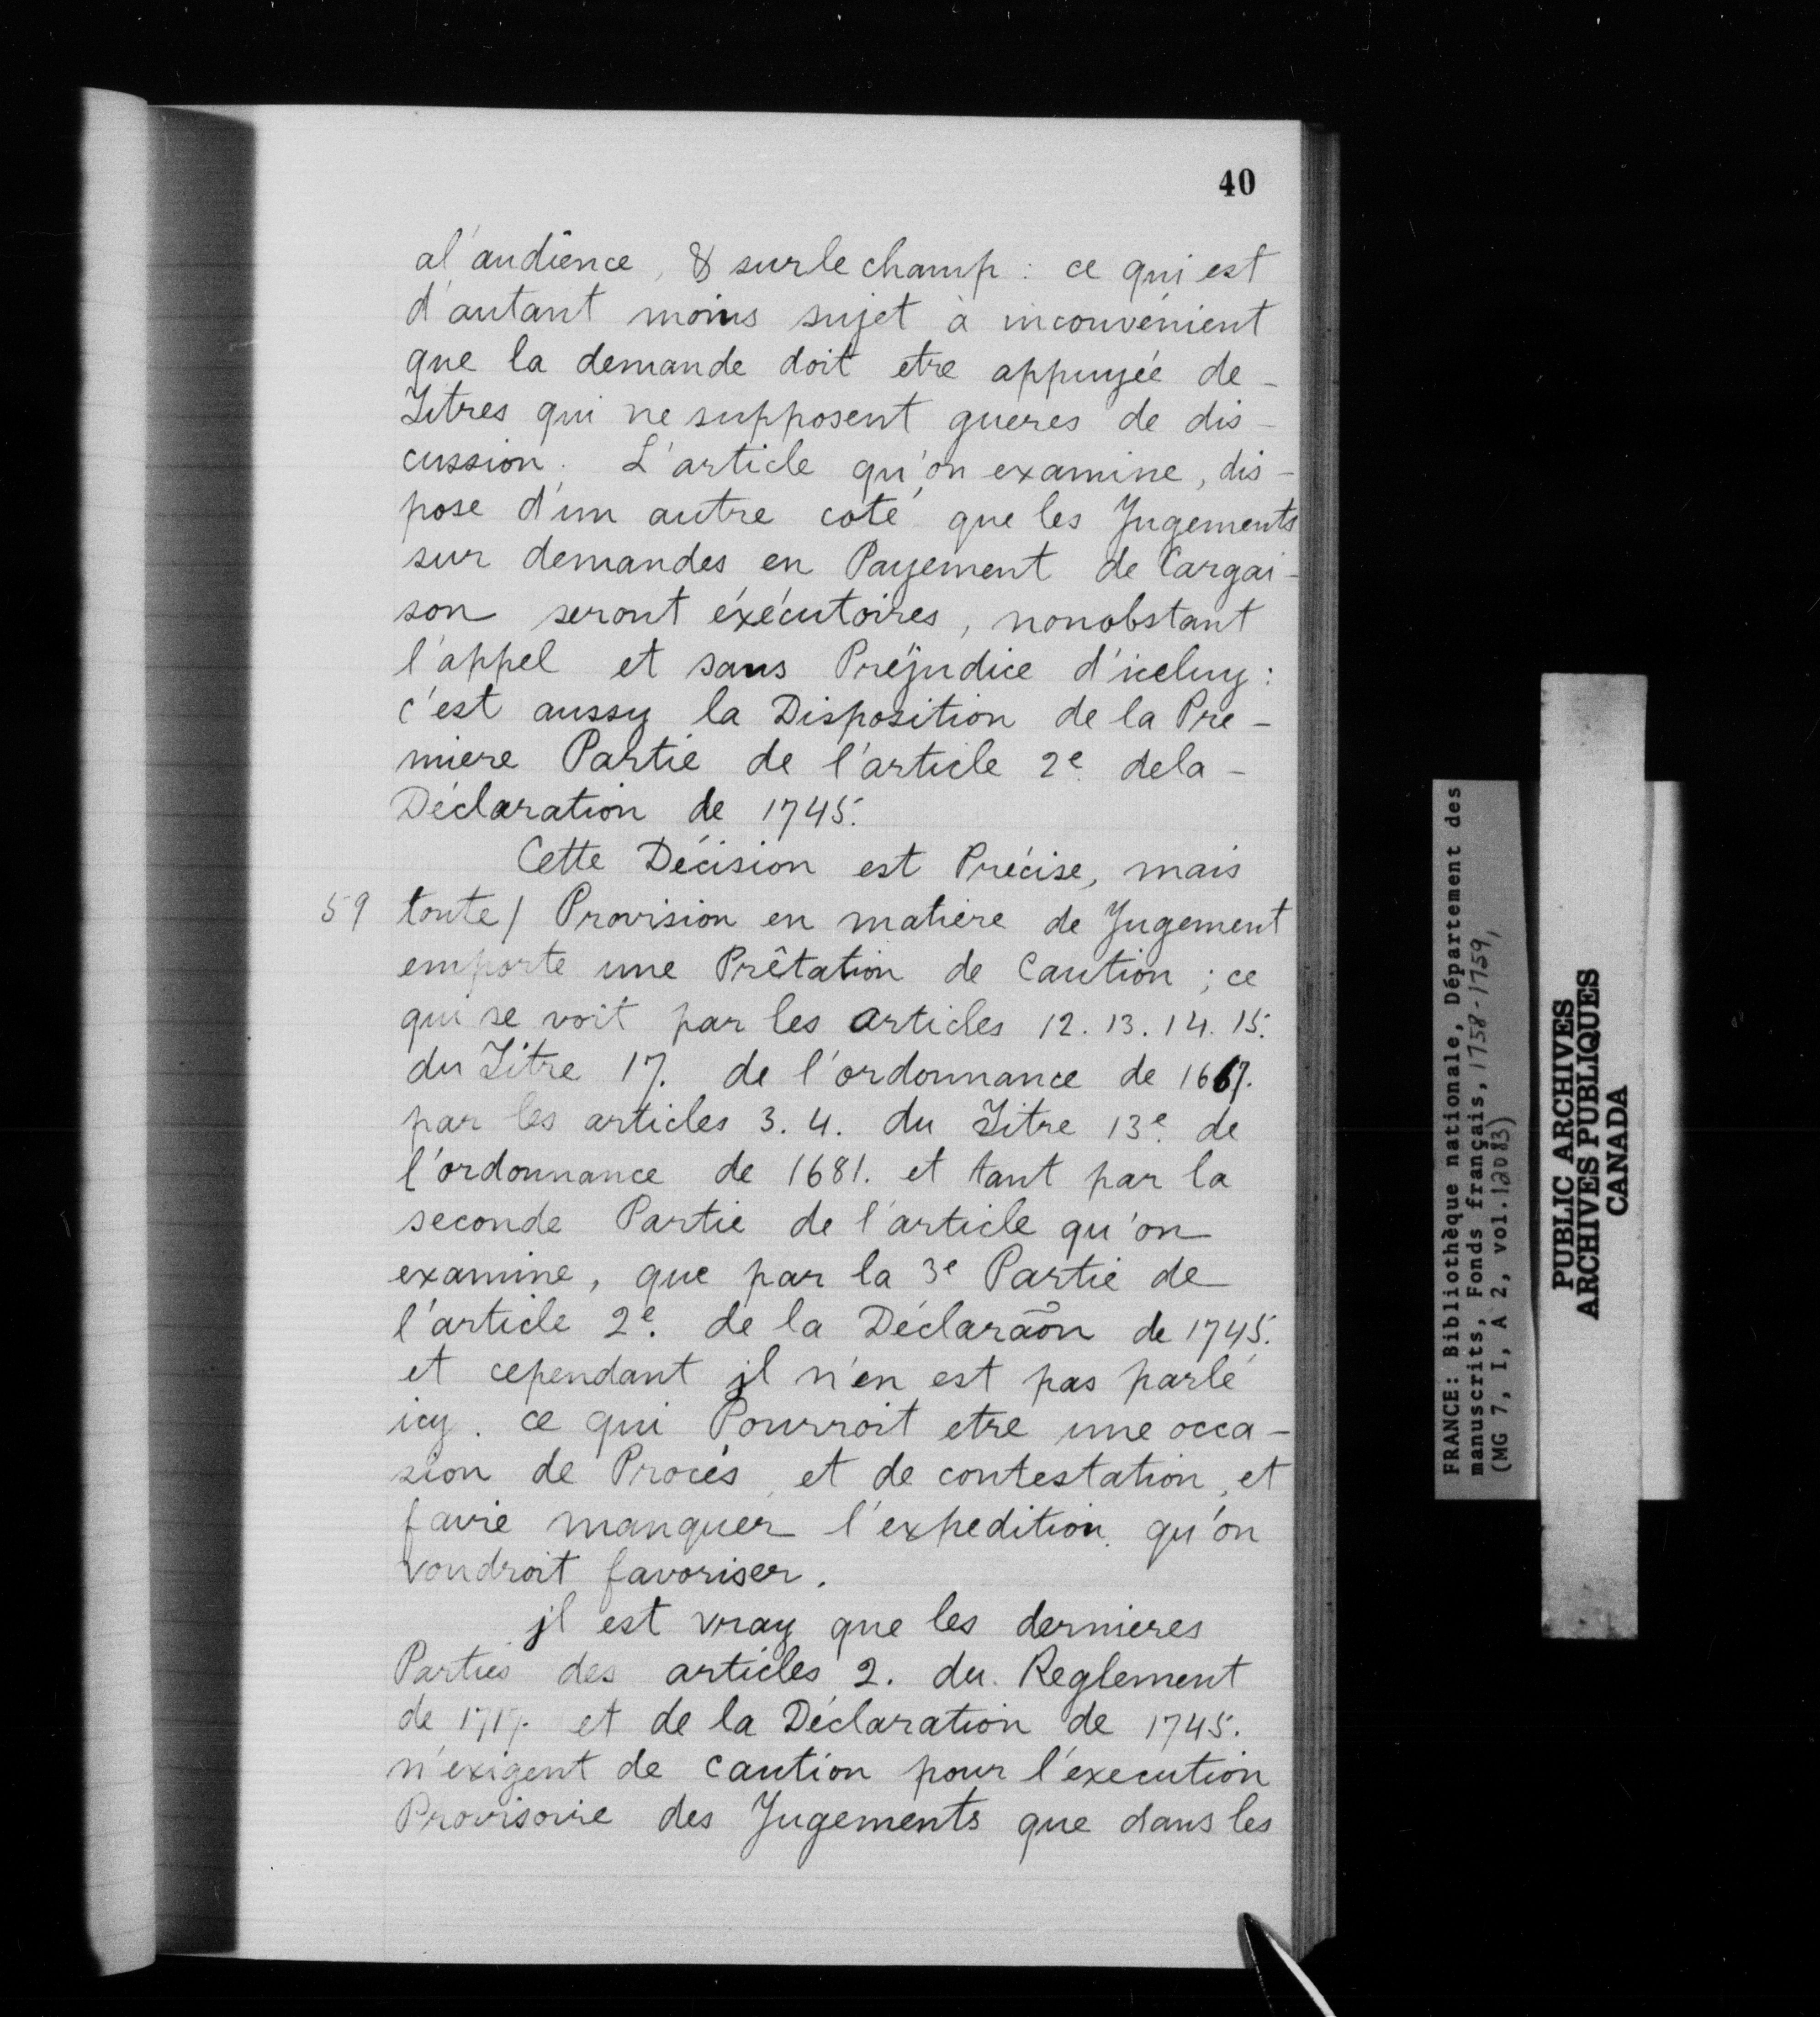 40
al'audience, & surle champ : ce qui est
d'autant moins sujet à inconvénient
que la demande doit etre appuyée de -
Titres qui ne supposent gueres de dis -
cussion. L'article qu'on examine, dis -
pose d'un autre coté que les Jugements
sur demandes en Payement de Cargai -
son seront éxécutoires, nonobstant
l'appel et sans Préjudice d'iceluy :
c'est aussy la Disposition de la Pre -
miere Partie de l'article 2e. dela -
Déclaration de 1745.
Cette Décision est Précise, mais
59 toute / Provision en matiere de Jugement
emporte une Prêtation de Caution ; ce
qui se voit par les articles 12. 13. 14. 15.
du Titre 17. de l'ordonnance de 1667.
par les articles 3. 4. du Titre 13e. de
l'ordonnance de 1681. et tant par la
seconde Partie de l'article qu'on
examine, que par la 3e Partie de
l'article 2e. de la Déclaraõn de 1745.
et cependant jl n'en est pas parlé
icy. ce qui Pourroit etre une occa -
sion de Procés, et de contestation, et
faire manquer l'expedition. qu'on
voudroit favoriser.
jl est vray que les dernieres
Parties des articles 2. du Reglement
de 1717. et de la Déclaration de 1745.
n'exigent de caution pour l'éxecution
Provisoire des Jugements que dans les
FRANCE: Bibliothèque nationale, Département des
manuscrits, Fonds français, 1758-1759,
(MG 7, I, A 2, vol.12083)
PUBLIC ARCHIVES
ARCHIVES PUBLIQUES
CANADA